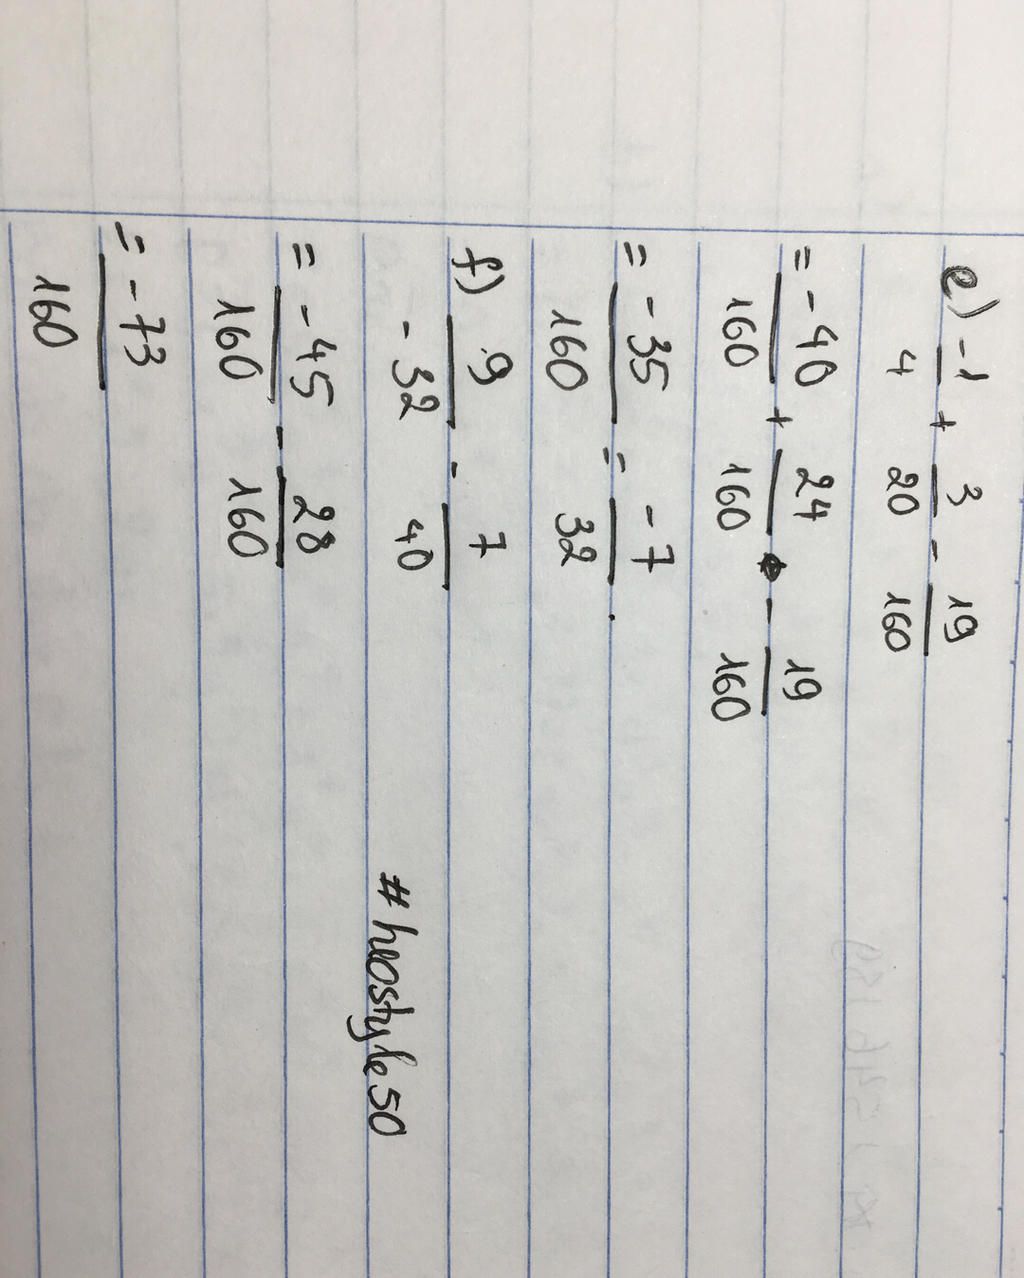 e) -1/4 + 3/20 - 19/160
= -40/160 + 24/160 - 19/160
= -35/160 = -7/32.
f) 9/-32 - 7/40
= -45/160 - 28/160
= -73/160
#huostyle50